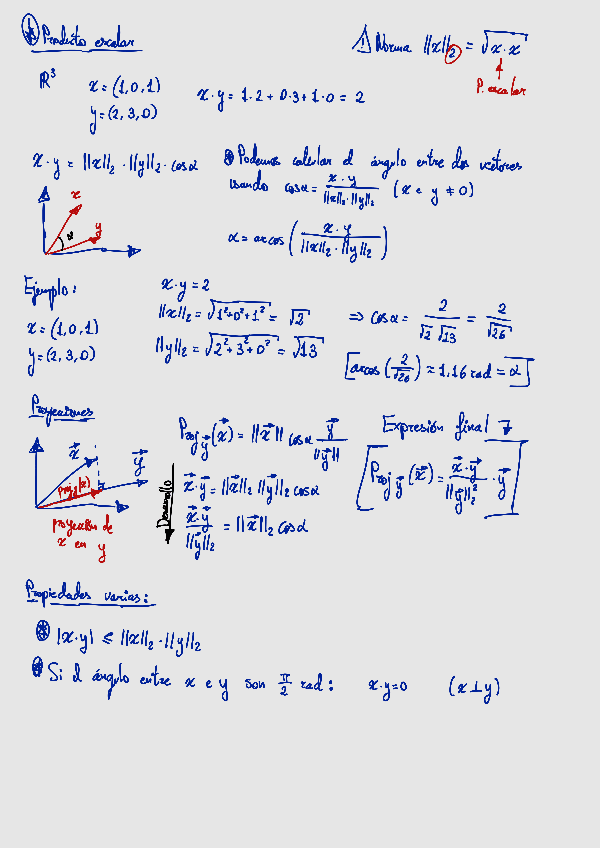 Producto escalar
⚠ Norma ||x||₂ = √(x·x)
P. escalar
ℝ³ x = (1,0,1)
y = (2,3,0)
x·y = 1·2 + 0·3 + 1·0 = 2
x·y = ||x||₂ · ||y||₂ · cosα
⊛ Podemos calcular el ángulo entre dos vectores
usando cosα = x·y / (||x||₂·||y||₂) (x e y ≠ 0)
x
α
y
α = arcos (x·y / (||x||₂·||y||₂))
Ejemplo:
x = (1,0,1)
y = (2,3,0)
x·y = 2
||x||₂ = √(1²+0²+1²) = √2
||y||₂ = √(2²+3²+0²) = √13
⇒ cosα = 2/(√2 √13) = 2/√26
[arcos (2/√26) ≈ 1,16 rad = α]
Proyecciones
x⃗
y⃗
proy_y(x)
proyección de
x en y
Proj_y⃗ (x⃗) = ||x⃗|| cosα y⃗/||y⃗||
Desarrollo
x⃗·y⃗ = ||x⃗||₂ ||y⃗||₂ cosα
x⃗·y⃗ / ||y⃗||₂ = ||x⃗||₂ cosα
Expresión final
[Proj_y⃗ (x⃗) = x⃗·y⃗ / ||y⃗||₂² · y⃗]
Propiedades varias:
⊛ |x·y| ≤ ||x||₂ · ||y||₂
⊛ Si el ángulo entre x e y son π/2 rad: x·y=0 (x⊥y)